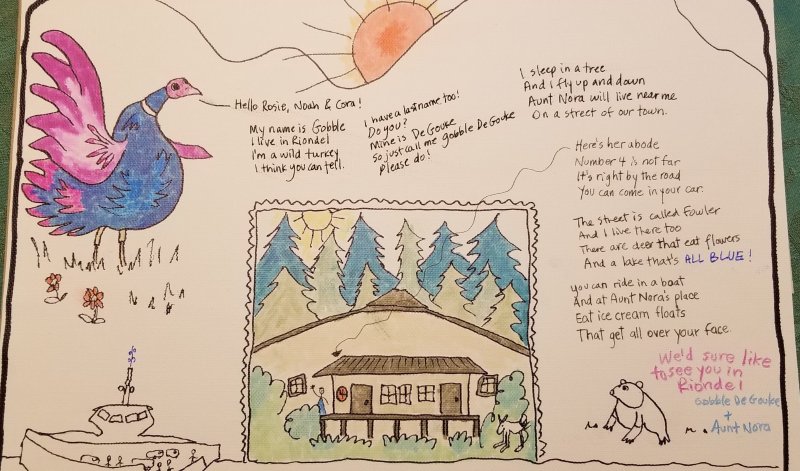 Hello Rosie, Noah & Cora!
My name is Gobble
I live in Riondel
I'm a wild turkey
I think you can tell.
I have a last name too!
Do you?
Mine is De Gouke
So just call me gobble De Gouke
Please do!
I sleep in a tree
And I fly up and down
Aunt Nora will live near me
On a street of our town.
Here's her abode
Number 4 is not far
It's right by the road
You can come in your car.
The street is called Fowler
And I live there too
There are deer that eat flowers
And a lake that's ALL BLUE!
you can ride in a boat
And at Aunt Nora's place
Eat ice cream floats
That get all over your face.
We'd sure like
to see you in
Riondel
Gobble De Gouke
+
Aunt Nora